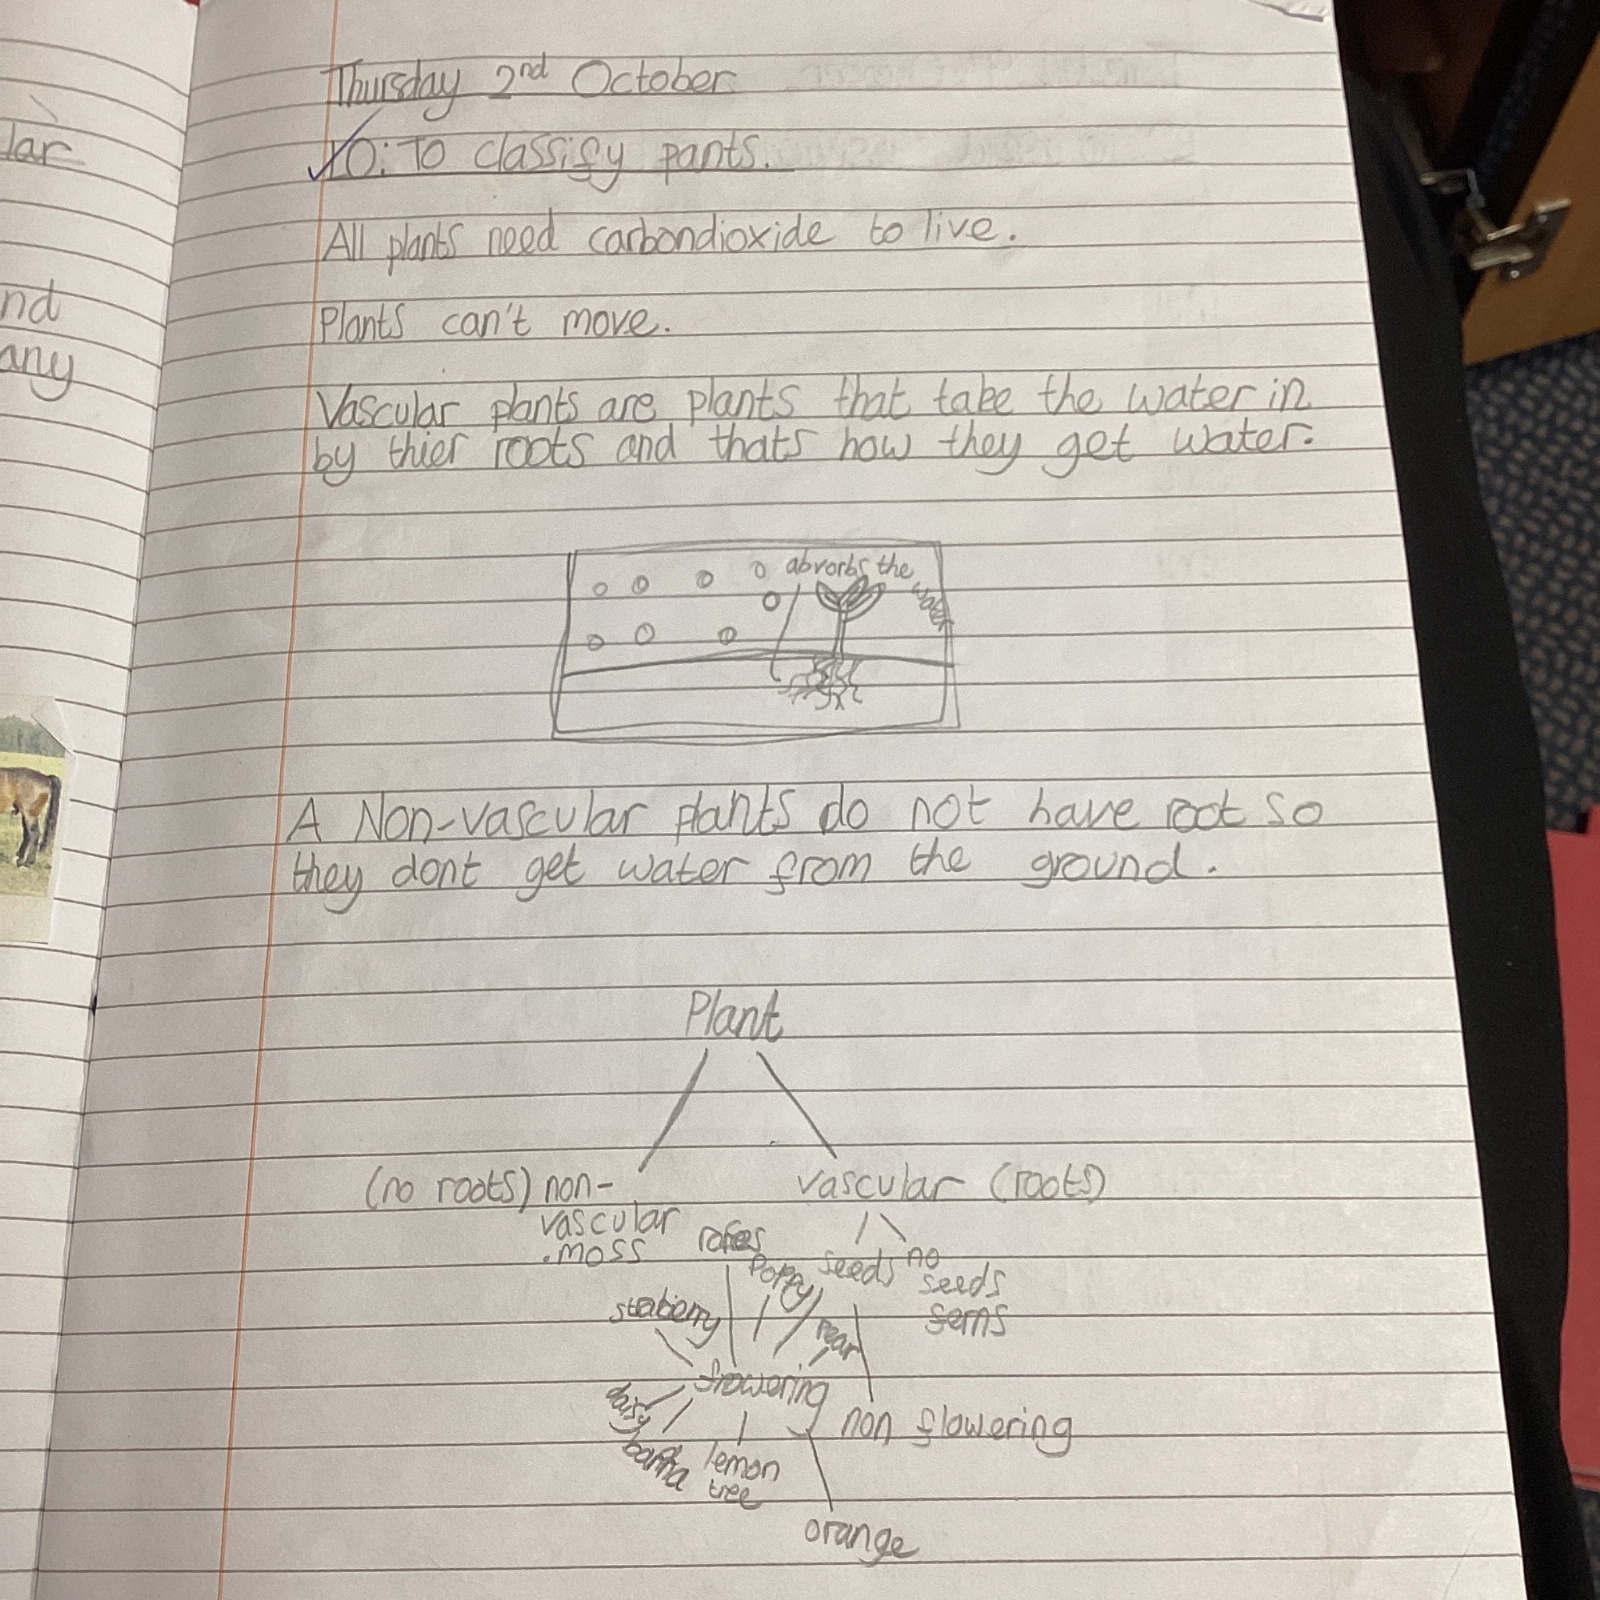 lar
nd
any
Thursday 2nd October
LO: To classify pants.
All plants need carbondioxide to live.
Plants can't move.
Vascular plants are plants that take the water in
by thier roots and thats how they get water.
abvorbs the
water
A Non-vascular plants do not have root so
they dont get water from the ground.
Plant
(no roots) non-
vascular
.moss
vascular (roots)
seeds
no
seeds
ferns
poppy
pear
flowering
daisy
lemon
tree
non flowering
orange